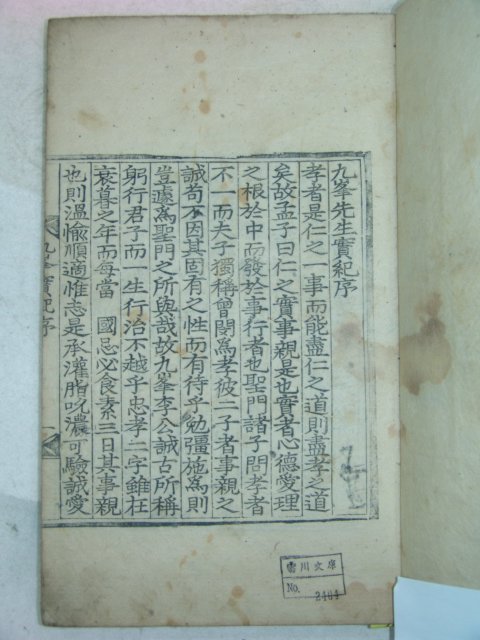 九峯先生實紀序
孝者是仁之一事而能盡仁之道則盡孝之道
矣故孟子曰仁之實事親是也實者心德愛理
之根於中而發於事行者也聖門諸子問孝者
不一而夫子獨稱曾閔爲孝彼二子者事親之
誠苟不因其固有之性而有待乎勉彊施爲則
豈遽爲聖門之所與哉故九峯李公誠古所稱
躬行君子而一生行治不越乎忠孝二字雖在
衰暮之年而每當 國忌必食素三日其事親
也則溫愉順適惟志是承灌脂吮濃可驗誠愛
九峯實紀序
一
雷川文庫
No. 2464